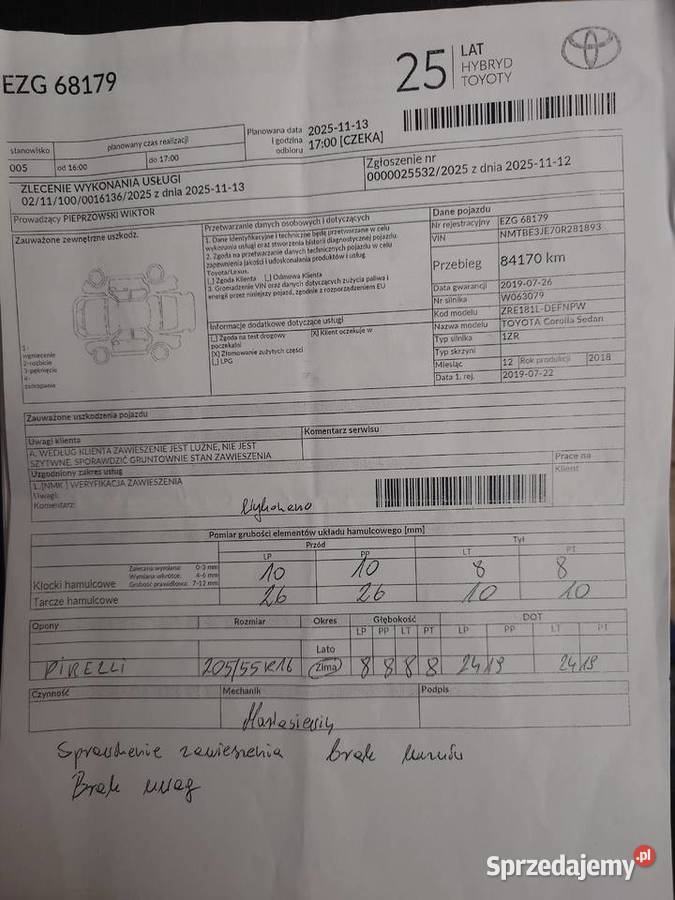 EZG 68179
25 LAT
HYBRYD
TOYOTY
stanowisko
planowany czas realizacji
005
od 16:00
do 17:00
Planowana data i godzina odbioru
2025-11-13
17:00 [CZEKA]
ZLECENIE WYKONANIA USŁUGI
02/11/100/0016136/2025 z dnia 2025-11-13
Zgłoszenie nr
0000025532/2025 z dnia 2025-11-12
Prowadzący PIEPRZOWSKI WIKTOR
Zauważone zewnętrzne uszkodz.
1 -
wgniecenie
2-rozbicie
3-pęknięcie
4 -
zadrapanie
Przetwarzanie danych osobowych i dotyczących
1. Dane identyfikacyjne i techniczne będą przetwarzane w celu
wykonania usługi oraz stworzenia historii diagnostycznej pojazdu.
2. Zgoda na przetwarzanie danych technicznych pojazdu w celu
zapewnienia jakości i udoskonalania produktów i usług
Toyota/Lexus.
[_] Zgoda Klienta [_] Odmowa Klienta
3. Gromadzenie VIN oraz danych dotyczących zużycia paliwa i
energii przez niniejszy pojazd, zgodnie z rozporządzeniem EU
Informacje dodatkowe dotyczące usługi
[_] Zgoda na test drogowy [X] Klient oczekuje w
poczekalni
[X] Złomowanie zużytych części
[_] LPG
Dane pojazdu
Nr rejestracyjny EZG 68179
VIN NMTBE3JE70R281893
Przebieg 84170 km
Data gwarancji 2019-07-26
Nr silnika W063079
Kod modelu ZRE181L-DEFNPW
Nazwa modelu TOYOTA Corolla Sedan
Typ silnika 1ZR
Typ skrzyni
Miesiąc 12 Rok produkcji 2018
Data 1. rej. 2019-07-22
Zauważone uszkodzenia pojazdu
Uwagi klienta
Komentarz serwisu
A. WEDŁUG KLIENTA ZAWIESZENIE JEST LUŹNE, NIE JEST
SZYTWNE. SPORAWDZIĆ GRUNTOWNIE STAN ZAWIESZENIA
Uzgodniony zakres usług
Prace na
1. [NMK ] WERYFIKACJA ZAWIESZENIA
Klient
Uwagi:
Komentarz:
Wykonano
Pomiar grubości elementów układu hamulcowego [mm]
Przód Tył
LP PP LT PT
Klocki hamulcowe
Zalecana wymiana: 0-3 mm
Wymiana wkrótce: 4-6 mm
Grubość prawidłowa: 7-12 mm
10 10 8 8
Tarcze hamulcowe 26 26 10 10
Opony Rozmiar Okres Głębokość DOT
LP PP LT PT LP PP LT PT
Lato
PIRELLI 205/55R16 Zima 8 8 8 8 2419 2419
Czynność Mechanik Podpis
Sprawdzenie zawieszenia brak luzów
Brak uwag
Sprzedajemy.pl